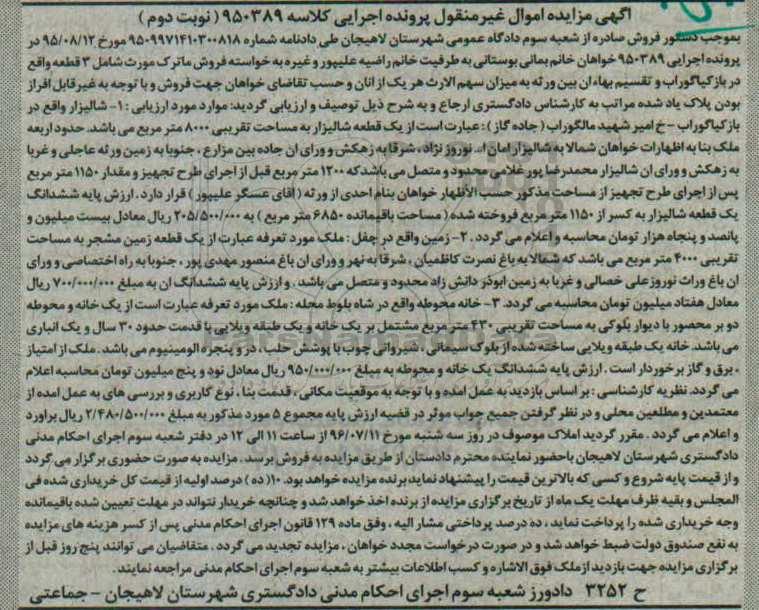 آگهی مزایده اموال غیرمنقول پرونده اجرایی کلاسه ۹۵۰۳۸۹ ( نوبت دوم )
بموجب دستور فروش صادره از شعبه سوم دادگاه عمومی شهرستان لاهیجان طی دادنامه شماره ۹۵۰۹۹۷۱۴۱۰۳۰۰۸۱۸ مورخ ۹۵/۰۸/۱۲ در
پرونده اجرایی ۹۵۰۳۸۹ خواهان خانم بمانی بوستانی به طرفیت خانم راضیه علیپور و غیره به خواسته فروش ماترک مورث شامل ۳ قطعه واقع
در بازکیاگوراب و تقسیم بهاءان بین ورثه به میزان سهم الارث هر یک از انان و حسب تقاضای خواهان جهت فروش و با توجه به غیر قابل افراز
بودن پلاک یاد شده مراتب به کارشناس دادگستری ارجاع و به شرح ذیل توصیف و ارزیابی گردید: موارد مورد ارزیابی : ۱- شالیزار واقع در
بازکیاگوراب - خ امیر شهید مالگوراب ( جاده گاز ) : عبارت است از یک قطعه شالیزار به مساحت تقریبی ۸۰۰۰ متر مربع می باشد. حدود اربعه
ملک بنا به اظهارات خواهان شمالا به شالیزار امان ا... نوروز نژاد ، شرقا به زهکش و ورای ان جاده بین مزارع ، جنوبا به زمین ورثه عاجلی و غربا
به زهکش و ورای ان شالیزار محمدرضا پور غلامی محدود و متصل می باشد که ۱۲۰۰ متر مربع قبل از اجرای طرح تجهیز و مقدار ۱۱۵۰ متر مربع
پس از اجرای طرح تجهیز از مساحت مذکور حسب الأظهار خواهان بنام احدی از ورثه ( آقای عسگر علیپور ) قرار دارد . ارزش پایه ششدانگ
یک قطعه شالیزار به کسر از ۱۱۵۰ متر مربع فروخته شده ( مساحت باقیمانده ۶۸۵۰ متر مربع ) به ۲۰۵/۵۰۰/۰۰۰ ریال معادل بیست میلیون و
پانصد و پنجاه هزار تومان محاسبه و اعلام می گردد . ۲- زمین واقع در چفل : ملک مورد تعرفه عبارت از یک قطعه زمین مشجر به مساحت
تقریبی ۴۰۰۰ متر مربع می باشد که شمالا به باغ نصرت کاظمیان ، شرقا به نهر و ورای ان باغ منصور مهدی پور ، جنوبا به راه اختصاصی و ورای
ان باغ وراث نوروزعلی خصالی و غربا به زمین ابوذر دانش زاد محدود و متصل می باشد . و ارزش پایه ششدانگ ان به مبلغ ۷۰۰/۰۰۰/۰۰۰ ریال
معادل هفتاد میلیون تومان محاسبه می گردد. ۳- خانه محوطه واقع در شاه بلوط محله : ملک مورد تعرفه عبارت است از یک خانه و محوطه
دو بر محصور با دیوار بلوکی به مساحت تقریبی ۴۳۰ متر مربع مشتمل بر یک خانه و یک طبقه ویلایی با قدمت حدود ۳۰ سال و یک انباری
می باشد. خانه یک طبقه ویلایی ساخته شده از بلوک سیمانی ، شیروانی چوب با پوشش حلب ، در و پنجره الومینیوم می باشد . ملک از امتیاز
، برق و گاز برخوردار است . ارزش پایه ششدانگ یک خانه و محوطه به مبلغ ۹۵۰/۰۰۰/۰۰۰ ریال معادل نود و پنج میلیون تومان محاسبه اعلام
می گردد. نظریه کارشناسی : بر اساس بازدید به عمل امده و با توجه به موقعیت مکانی ، قدمت بنا ، نوع کاربری و بررسی های به عمل امده از
معتمدین و مطلعین محلی و در نظر گرفتن جمیع جواب موثر در قضیه ارزش پایه مجموع ۵ مورد مذکور به مبلغ ۲/۴۸۰/۵۰۰/۰۰۰ ریال براورد
و اعلام می گردد . مقرر گردید املاک موصوف در روز سه شنبه مورخ ۹۶/۰۷/۱۱ از ساعت ۱۱ الی ۱۲ در دفتر شعبه سوم اجرای احکام مدنی
دادگستری شهرستان لاهیجان باحضور نماینده محترم دادستان از طریق مزایده به فروش برسد . مزایده به صورت حضوری برگزار می گردد
و از قیمت پایه شروع و کسی که بالاترین قیمت را پیشنهاد نماید برنده مزایده خواهد بود. ۱۰( ده ) درصد اولیه از قیمت کل خریداری شده فی
المجلس و بقیه ظرف مهلت یک ماه از تاریخ برگزاری مزایده از برنده اخذ خواهد شد و چنانچه خریدار نتواند در مهلت تعیین شده باقیمانده
وجه خریداری شده را پرداخت نماید ، ده درصد پرداختی مشار الیه ، وفق ماده ۱۲۹ قانون اجرای احکام مدنی پس از کسر هزینه های مزایده
به نفع صندوق دولت ضبط خواهد شد و در صورت درخواست مجدد خواهان ، مزایده تجدید می گردد . متقاضیان می توانند پنج روز قبل از
برگزاری مزایده جهت بازدید از ملک فوق الاشاره و کسب اطلاعات بیشتر به شعبه سوم اجرای احکام مدنی مراجعه نمایند .
ح ۳۲۵۲ دادورز شعبه سوم اجرای احکام مدنی دادگستری شهرستان لاهیجان - جماعتی